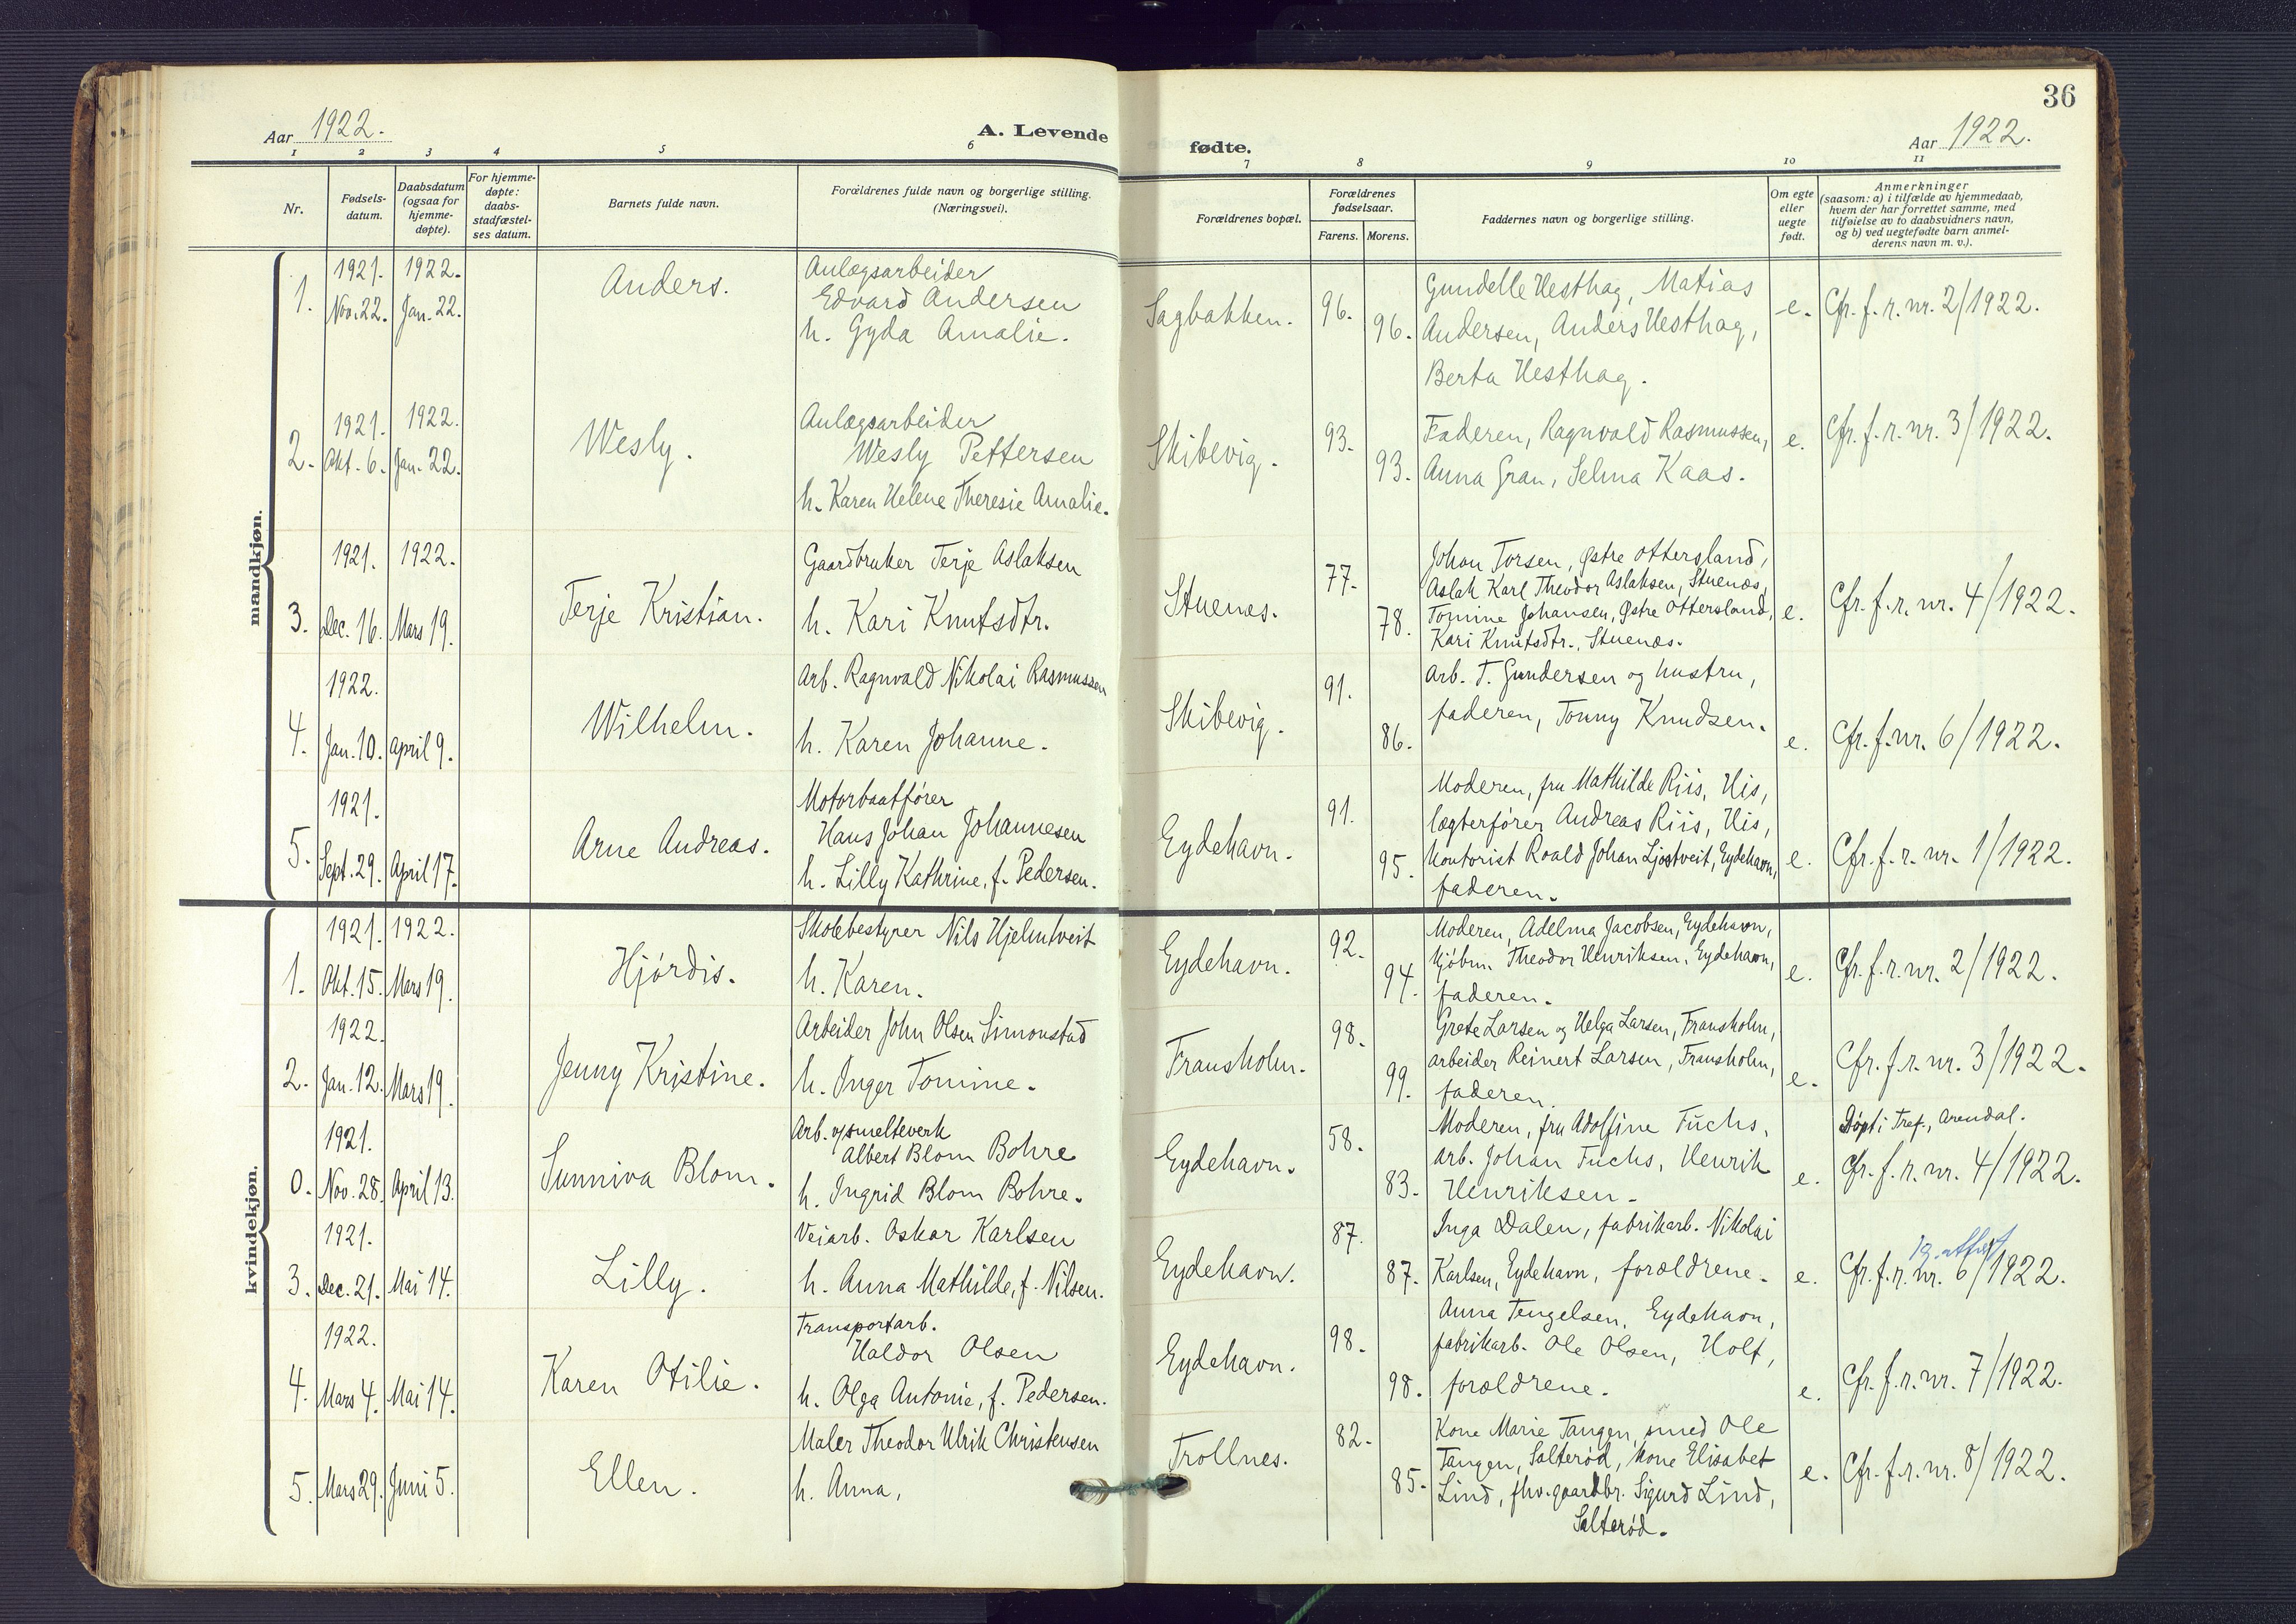 36
Aar 1922.
A. Levende fødte.
Aar 1922.
1 2 3 4 5 6 7 8 9 10 11
Nr.
Fødsels-
datum.
Daabsdatum
(ogsaa for
hjemme-
døpte).
For hjemme-
døpte:
daabs-
stadfæstel-
ses datum.
Barnets fulde navn.
Forældrenes fulde navn og borgerlige stilling.
(Næringsvei).
Forældrenes bopæl.
Forældrenes
fødselsaar.
Farens. Morens.
Faddernes navn og borgerlige stilling.
Om egte
eller
uegte
født.
Anmerkninger
(saasom: a) i tilfælde av hjemmedaab,
hvem der har forrettet samme, med
tilføielse av to daabsvidners navn,
og b) ved uegtefødte barn anmel-
derens navn m. v.).
mandkjøn.
1.
1921.
Nov. 22.
1922.
Jan. 22.
Anders.
Anlægsarbeider
Edvard Andersen
h. Gyda Amalie.
Sagbakken.
96.
96.
Gundelle Hesthag, Matias
Andersen, Anders Hesthag,
Berta Hesthag.
e.
Cfr. f. r. nr. 2/1922.
2.
1921.
Okt. 6.
1922.
Jan. 22.
Wesly.
Anlægsarbeider
Wesly Pettersen
h. Karen Helene Theresie Amalie.
Skibevig.
93.
93.
Faderen, Ragnvald Rasmussen,
Anna Gran, Selma Kaas.
e.
Cfr. f. r. nr. 3/1922.
3.
1921.
Dec. 16.
1922.
Mars 19.
Terje Kristian.
Gaardbruker Terje Aslaksen
h. Kari Knutsdtr.
Stuenæs.
77.
78.
Johan Torsen, Østre Ottersland,
Aslak Karl Theodor Aslaksen, Stuenæs,
Tomine Johansen, Østre Ottersland,
Kari Knutsdtr., Stuenæs.
e.
Cfr. f. r. nr. 4/1922.
4.
1922.
Jan. 10.
April 9.
Wilhelm.
Arb. Ragnvald Nikolai Rasmussen
h. Karen Johanne.
Skibevig.
91.
86.
Arb. T. Gundersen og hustru,
faderen, Tonny Knudsen.
e.
Cfr. f. nr. 6/1922.
5.
1921.
Sept. 29.
April 17.
Arne Andreas.
Motorbaatfører
Hans Johan Johannesen
h. Lilly Kathrine, f. Pedersen.
Eydehavn.
91.
95.
Moderen, fru Mathilde Riis, His,
lægterfører Andreas Riis, His,
kontorist Roald Johan Ljostveit, Eydehavn,
faderen.
e.
Cfr. f. r. nr. 1/1922.
kvindekjøn.
1.
1921.
Okt. 15.
1922.
Mars 19.
Hjørdis.
Skolebestyrer Nils Hjelmtveit
h. Karen.
Eydehavn.
92.
94.
Moderen, Adelma Jacobsen, Eydehavn,
kjøbm. Theodor Henriksen, Eydehavn,
faderen.
e.
Cfr. f. r. nr. 2/1922.
2.
1922.
Jan. 12.
Mars 19.
Jenny Kristine.
Arbeider John Olsen Simonstad
h. Inger Tomine.
Fransholm.
98.
99.
Grete Larsen og Helga Larsen, Fransholm,
arbeider Reinert Larsen, Fransholm,
faderen.
e.
Cfr. f. r. nr. 3/1922.
0.
1921.
Nov. 28.
April 13.
Sunniva Blom.
Arb. v/smelteverk
Albert Blom Bohre
h. Ingrid Blom Bohre.
Eydehavn.
58.
83.
Moderen, fru Adolfine Fuchs,
arb. Johan Fuchs, Henrik
Henriksen.
e.
Døpt i Tref., Arendal.
Cfr. f. r. nr. 4/1922.
3.
1921.
Dec. 21.
Mai 14.
Lilly.
Veiarb. Oskar Karlsen
h. Anna Mathilde, f. Nilsen.
Eydehavn.
87.
87.
Inga Dalen, fabrikarb. Nikolai
Karlsen, Eydehavn, forældrene.
e.
Cfr. f. r. nr. 6/1922.
4.
1922.
Mars 4.
Mai 14.
Karen Otilie.
Transportarb.
Haldor Olsen
h. Olga Antonie, f. Pedersen.
Eydehavn.
98.
98.
Anna Tengelsen, Eydehavn,
fabrikarb. Ole Olsen, Holt,
forældrene.
e.
Cfr. f. r. nr. 7/1922.
5.
Mars 29.
Juni 5.
Ellen.
Maler Theodor Ulrik Christensen
h. Anna,
Trollnes.
82.
85.
Kone Marie Tangen, smed Ole
Tangen, Salterød, kone Elisabet
Lind, fhv. gaardbr. Sigurd Lind,
Salterød.
e.
Cfr. f. r. nr. 8/1922.